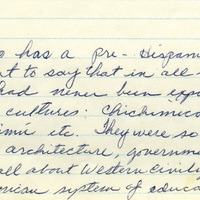 has a pre-Hispan
t to say that in all
had never been exp
cultures: Chichimec
imú etc. They were so
architecture, governme
all about Western Civily
rican system of educa